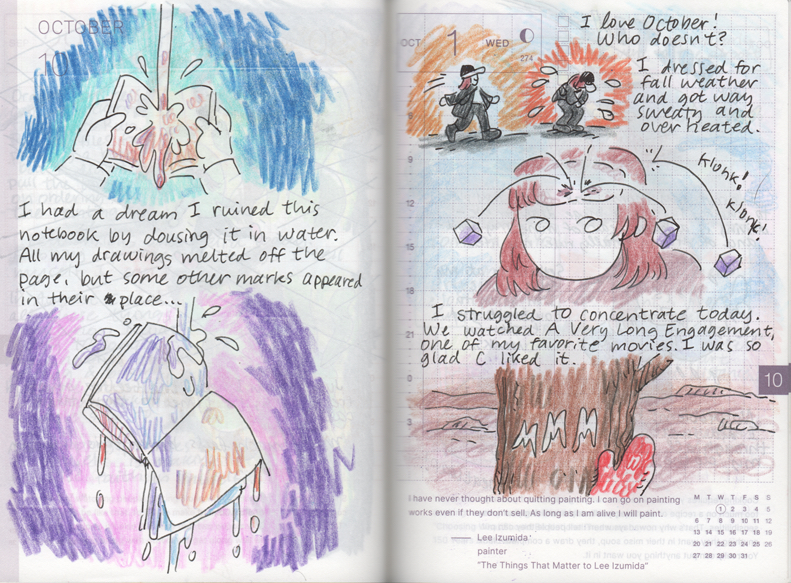 OCTOBER
10
I had a dream I ruined this
notebook by dousing it in water.
All my drawings melted off the
page, but some other marks appeared
in their place...
OCT
1
WED
274
I love October!
Who doesn't?
I dressed for
fall weather
and got way
sweaty and
overheated.
9
12
15
18
21
0
3
klonk!
klonk!
I struggled to concentrate today.
We watched A Very Long Engagement,
one of my favorite movies. I was so
glad C liked it.
10
MMM
I have never thought about quitting painting. I can go on painting
works even if they don't sell. As long as I am alive I will paint.
Lee Izumida
painter
"The Things That Matter to Lee Izumida"
M T W T F S S
1 2 3 4 5
6 7 8 9 10 11 12
13 14 15 16 17 18 19
20 21 22 23 24 25 26
27 28 29 30 31